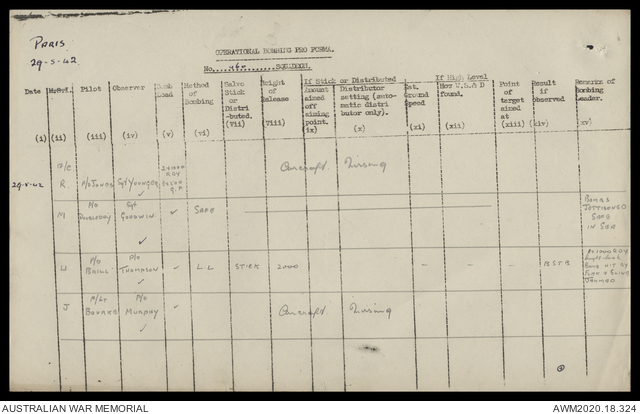 PARIS
29-5-42
OPERATIONAL BOMBING PRO FORMA.
No. 460 SQUADRON.
Date Pilot Observer Bomb Load Method of Bombing Salvo Stick or Distri-buted. Height of Release If Stick or Distributed Amount aimed off aiming point. Distributor setting (automatic distributor only). Est. Ground Speed If High Level How W.S.& D found. Point of target aimed at Result if observed Remarks of Bombing Leader.
(i) (ii) (iii) (iv) (v) (vi) (vii) viii) ix) (x) (xi) (xii) (xiii) (xiv) xv)
29-5-42 R P/O JONES Sgt YOUNGER Aircraft Missing
M P/O Sgt GOODWIN ✓ ✓ SAFE BOMBS JETTISONED SAFE IN SEA
U P/O BRILL P/O THOMPSON ✓ ✓ L L STICK 2000 - - - B S T B
J BOURKE P/O MURPHY ✓ ✓ Aircraft Missing
AUSTRALIAN WAR MEMORIAL
AWM2020.18.324